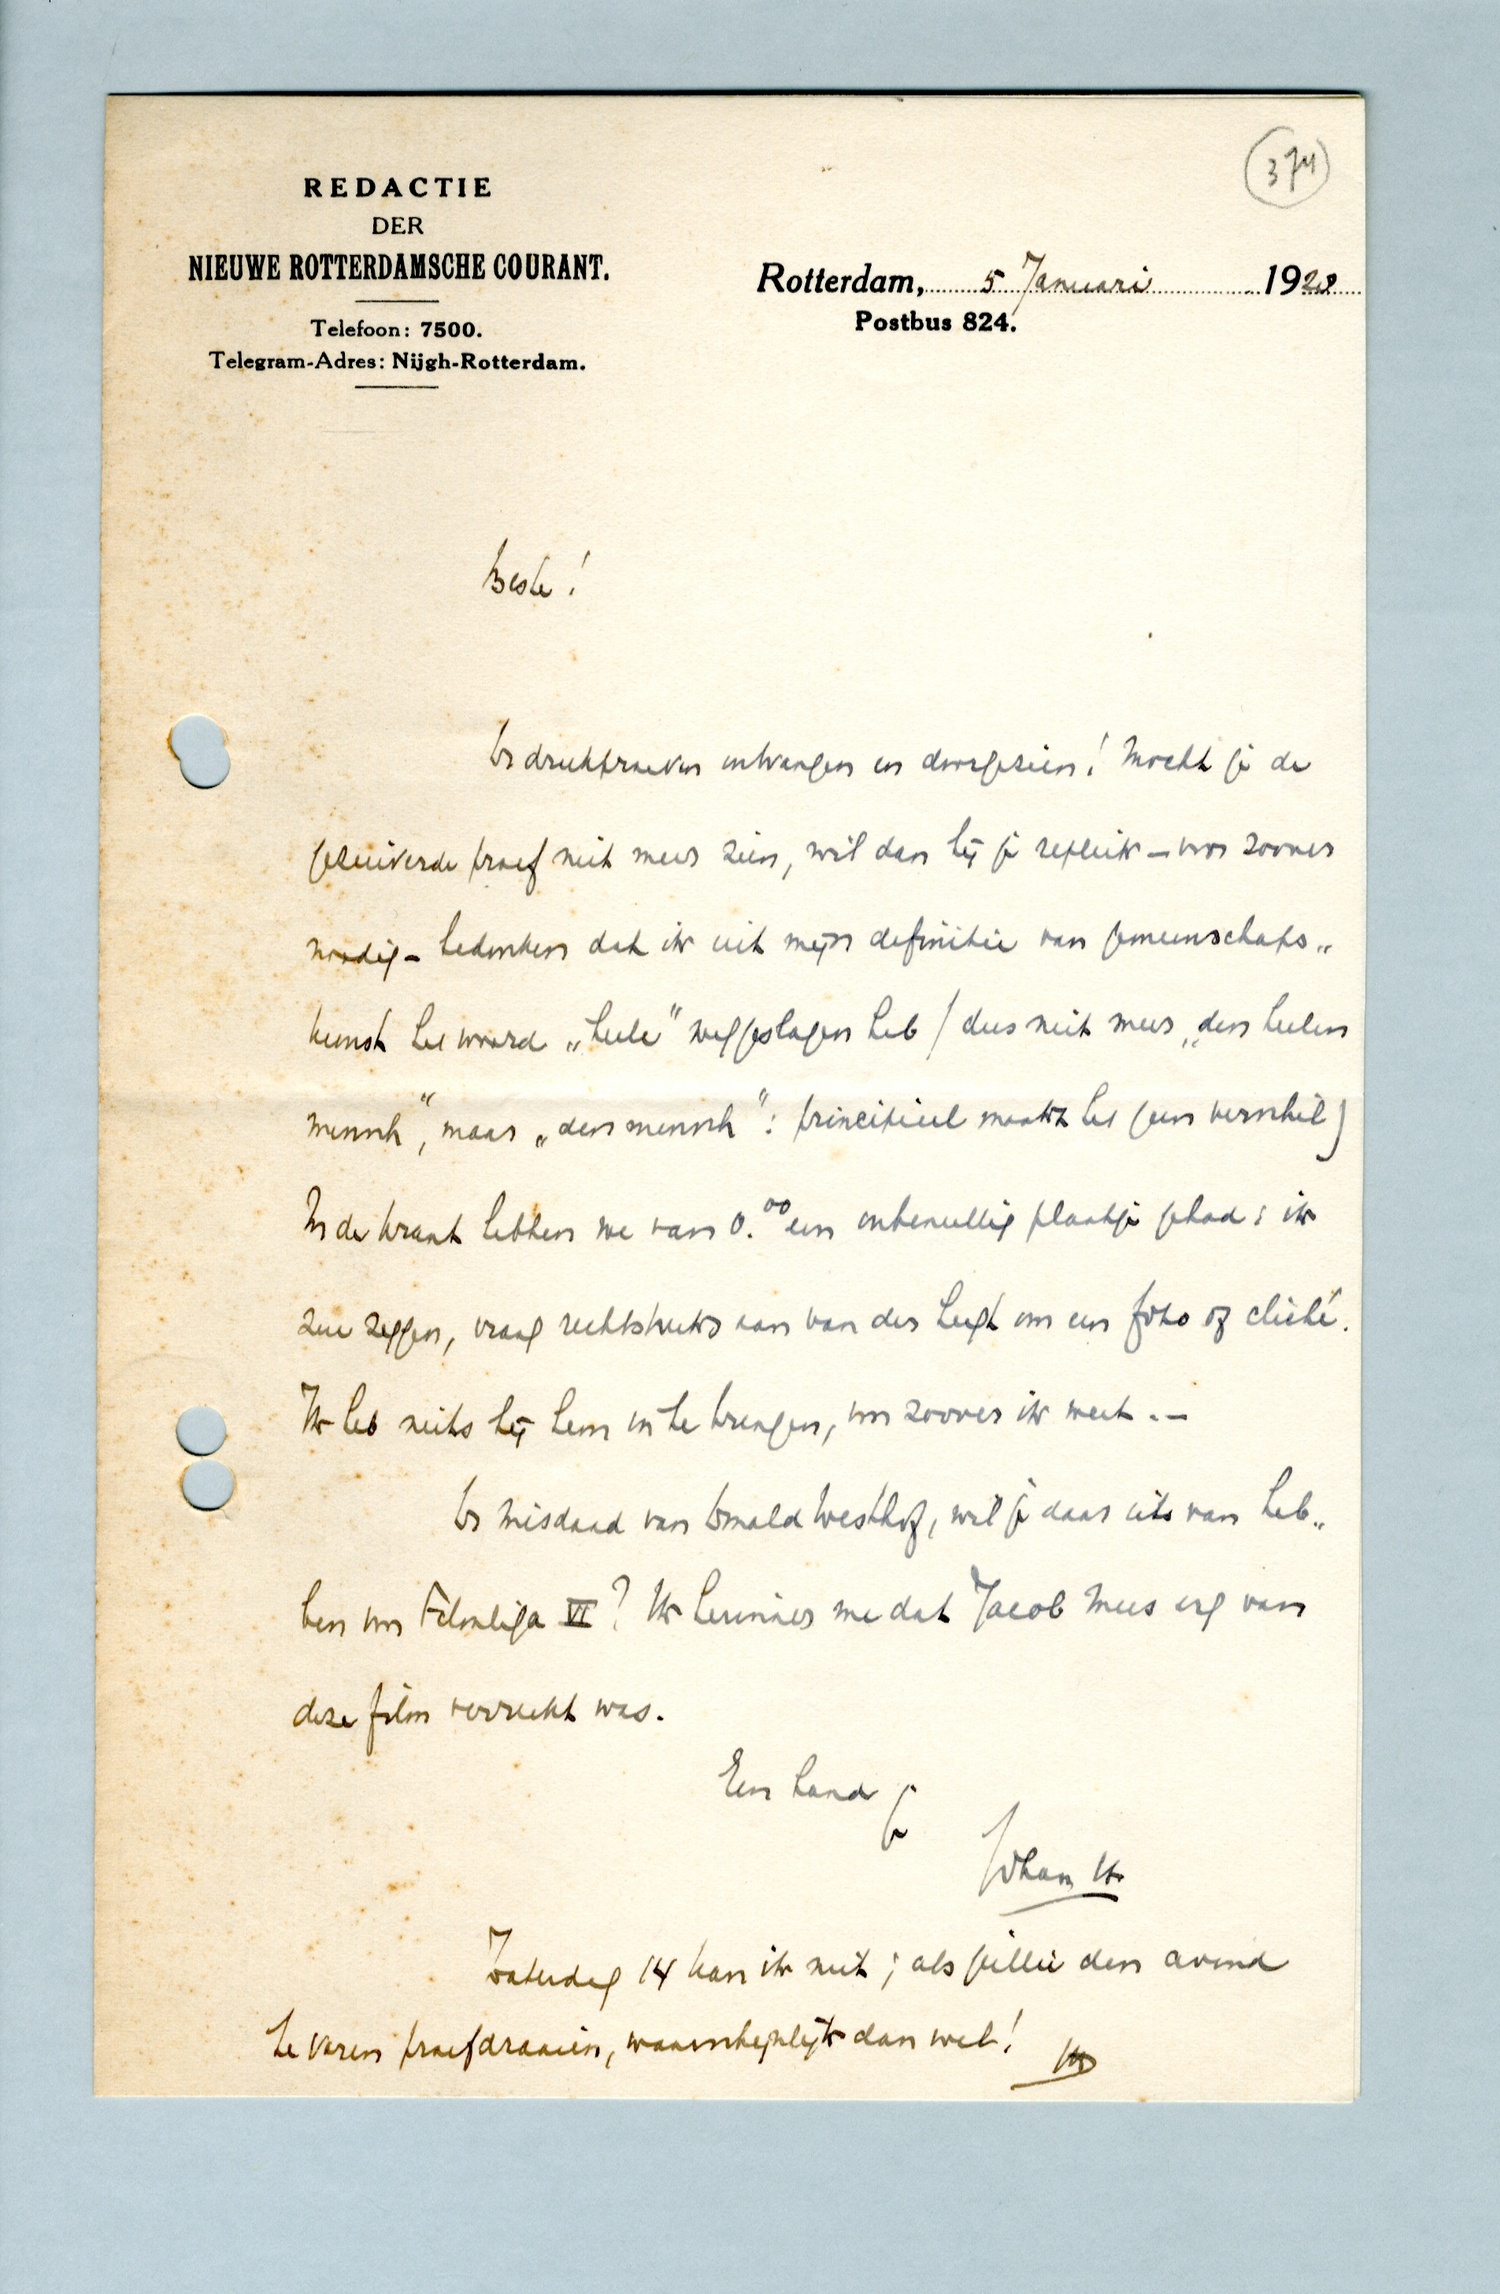 374
REDACTIE
DER
NIEUWE ROTTERDAMSCHE COURANT.
Rotterdam, 5 Januari 1928
Postbus 824.
Telefoon: 7500.
Telegram-Adres: Nijgh-Rotterdam.
Beste!
De drukproeven ontvangen en doorgezien! Mocht je de
gezuiverde proef niet meer zien, wil dan bij je repliek – voor zoover
noodig – bedenken dat ik uit mijn definitie van gemeenschaps„
kunst het woord „heele" weggeslagen heb (dus niet meer „den heelen
mensch", maar „den mensch": principieel maakt het geen verschil)
In de krant hebben we van O. een onbenullig plaatje gehad; ik
zou zeggen, vraag rechtstreeks aan van der Lugt om een foto of cliché.
Ik heb niets bij hem in te brengen, voor zoover ik weet. –
De misdaad van Ewald Westhof, wil je daar iets van heb„
ben voor Filmliga VI? Ik herinner me dat Jacob Mees erg van
deze film verrukt was.
Een hand
Johan H
Zaterdag 14 kan ik niet; als jullie den avond
te voren proefdraaien, waarschijnlijk dan wel!